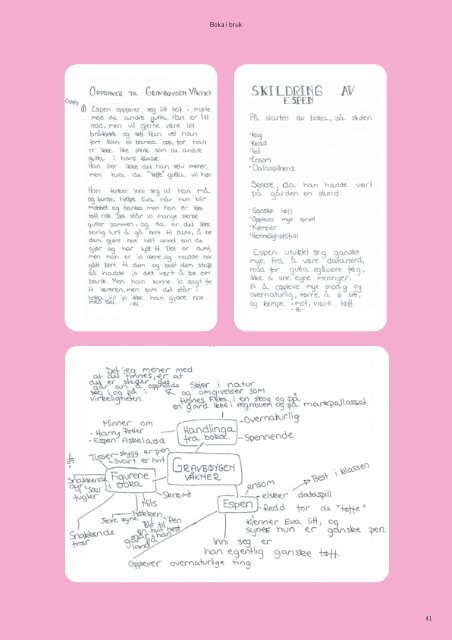 Boka i bruk
OPPGAVER TIL GRAVBØYGEN VÅKNER
Espen oppfører seg litt teit i møte
med de andre gutta. Han er litt
redd, men vil gjerne være litt
og tøff. Han vet han
fort kan bli banka opp, for han
er ikke like sterk som de andre
gutta i hans klasse.
Han sier ikke det han selv mener,
men hva de "tøffe" gutta vil hør
Han tenker inni seg at han må,
og burde, hjelpe Eva når hun blir
mobbet og banka, men han er ikke
tøff nok. Det står jo mange sterke
gutter sammen, og da er det ikke
særlig lurt å gå bort til dem, å be
dem gjøre noe helt annet enn de
gjør og har lyst til. Det er dumt,
men han er jo alene, og hadde han
gått bort til dem og bedt dem stoppe
så hadde jo det vært å be om
bank. Men han kunne jo sagt fra
til læreren, men som det står i
boka vil jo ikke han gjøre noe
med det.
SKILDRING AV
ESPEN
På starten av boka, på skolen:
-Feig
-Redd
-Ensom
-Dataspillnerd
Senere, da han hadde vært
på gården en stund:
-Ganske tøff
-Opplever mye
-Kjemper
-Hemmelighetsfull
Espen utvikler seg ganske
mye. Fra å være datanerd,
redd for gutta og være feig,
ikke si sine egne meninger,
til å oppleve mye snodig og
overnaturlig, tørre å si sitt,
og kjempe imot, være tøff.
Det jeg mener med
at det finnes, er at
det er steder det
går an å oppholde
seg i og på i
virkeligheten.
Skjer i natur
og omgivelser som
finnes. F.eks. i en skog og på
en gård. Ikke i regnbuen og på marsipanslottet.
Minner om
-Harry Potter
-Espen Askeladd
Handlinga
fra boka.
-Overnaturlig
-Spennende
Tusser-skygg er pen
svart er hvit
Figurene
i boka
GRAVBØYGEN
VÅKNER
Snakkende
dyr
fugler
Snakkende
trær
Nils
Skremt
Store øyne
Nøkken
Blir til
en hvit hest
når han
går på
land
Pen
Espen
ensom
Best i klassen
elsker dataspill
Redd for de "tøffe"
Kjenner Eva litt, og
synes hun er ganske pen.
Inni seg er
han egentlig ganske tøff.
Opplever overnaturlige ting
41